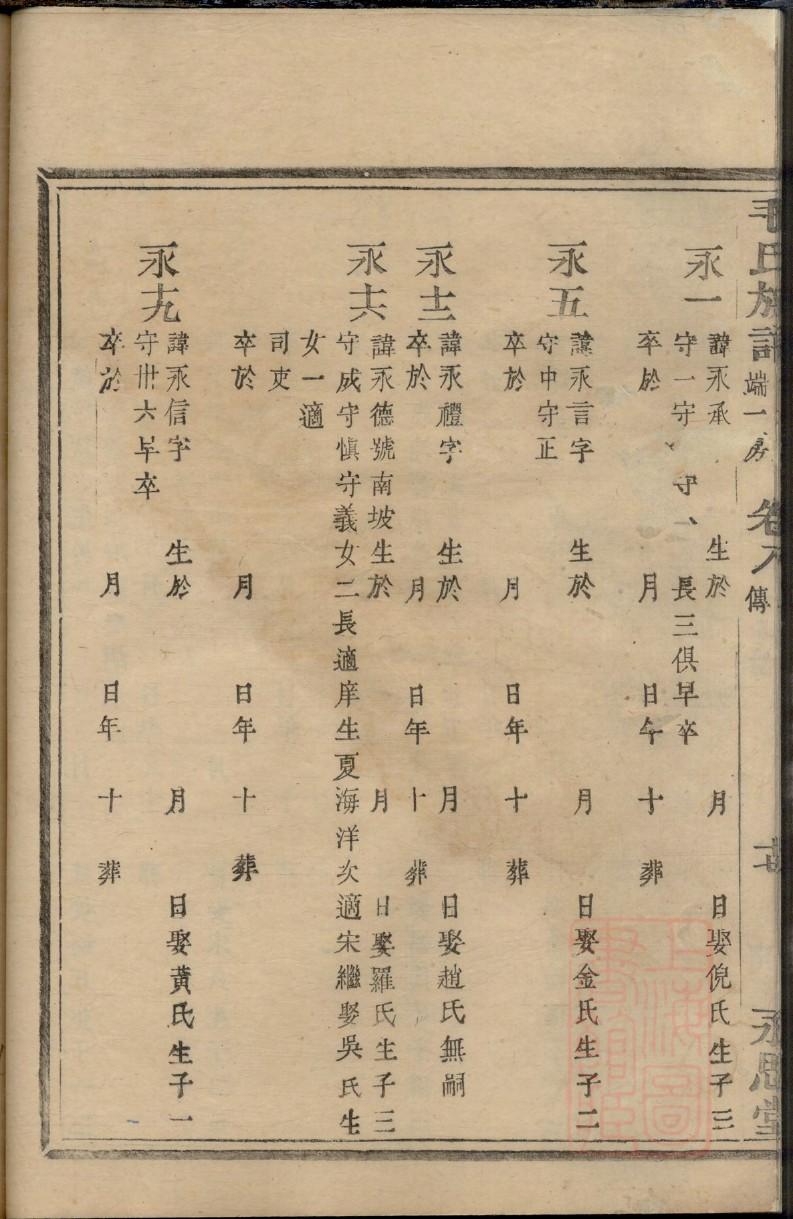 毛氏族譜 端一房 卷八 傳 永思堂
永一 諱永承 生於 月 日娶倪氏生子三
守一守 守 長三俱早卒
卒於 月 日年十 葬
永五 諱永言字 生於 月 日娶金氏生子二
守中守正
卒於 月 日年 十 葬
永十二 諱永禮字 生於 月 日娶趙氏無嗣
卒於 月 日年 十 葬
永十六 諱永德號南坡生於 月 日娶羅氏生子三
守成守慎守義女二長適庠生夏海洋次適宋繼娶吳氏生
女一適
司吏
卒於 月 日年 十 葬
永十九 諱永信字 生於 月 日娶黃氏生子一
守卅六早卒
卒於 月 日年 十 葬
上海圖書館藏